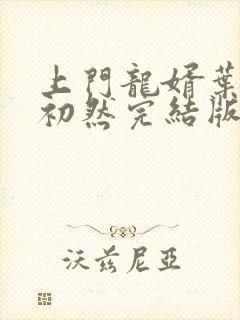 上門龍婿葉
初然完結版
沃茲尼亞